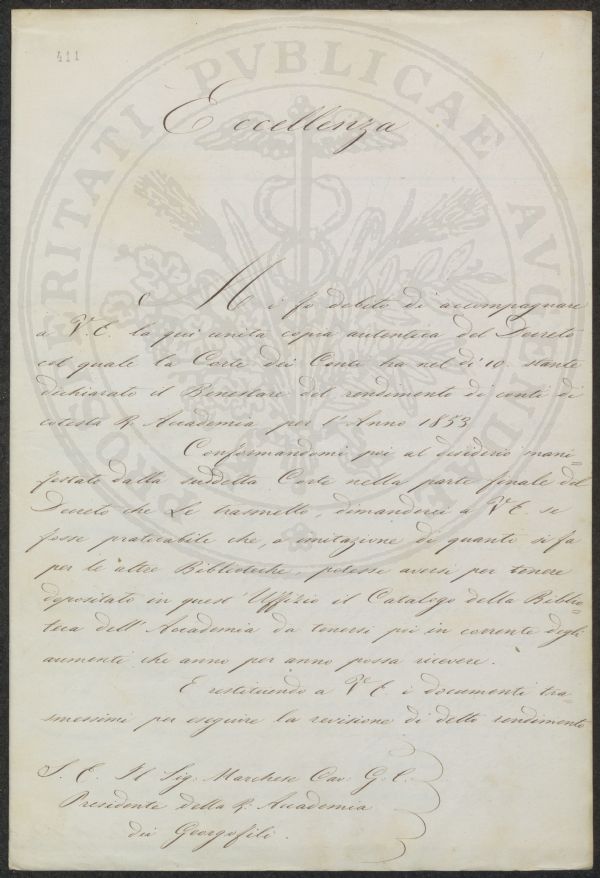 411
Eccellenza
Mi fo debito di accompagnare
a V.E. la qui unita copia autentica del Decreto
col quale la Corte dei Conti ha nel dì 10. stante
dichiarato il Benestare del rendimento di conti di
cotesta R. Accademia per l'Anno 1853
Conformandomi poi al desiderio mani=
festato dalla suddetta Corte nella parte finale del
Decreto che Le trasmetto, dimanderei a V.E. se
fosse praticabile che, a imitazione di quanto si fa
per le altre Biblioteche, potesse aversi per tenere
depositato in quest'Uffizio il Catalogo della Biblio=
teca dell'Accademia da tenersi poi in corrente degli
aumenti che anno per anno possa ricevere.
E restituendo a V.E. i documenti tra=
smessimi per eseguire la revisione di detto rendimento
S. E. Il Sig. Marchese Cav. G. C.
Presidente della R. Accademia
dei Georgofili.
PROSPERITATI PVBLICAE AVGENDAE